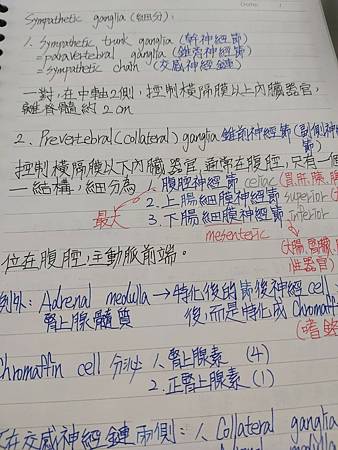 Sympathetic ganglia (細分):
1. Sympathetic trunk ganglia (幹神經節)
=paravertebral ganglia (錐旁神經節)
=Sympathetic chain (交感神經鏈)
一對,在中軸2側,控制橫隔膜以上內臟器官,
離脊髓約2cm
2. Prevertebral (collateral) ganglia 錐前神經節(副側神經節)
控制橫隔膜以下內臟器官,通常在腹腔,只有一個
一結構,細分為 1. 腹腔神經節 celiac (胃,肝,
最大 2. 上腸細膜神經節 superior
3. 下腸細膜神經節 inferior
mesenteric (大腸,腎臟,
性器官)
位在腹腔,主動脈前端。
例外: Adrenal medulla → 特化後的節後神經cell
腎上腺髓質 後,而是特化成 Chromaffin
(嗜鉻
Chromaffin cell 分泌 1. 腎上腺素 (4)
2. 正腎上腺素 (1)
在交感神經鏈兩側: 1. Collateral ganglia
medulla